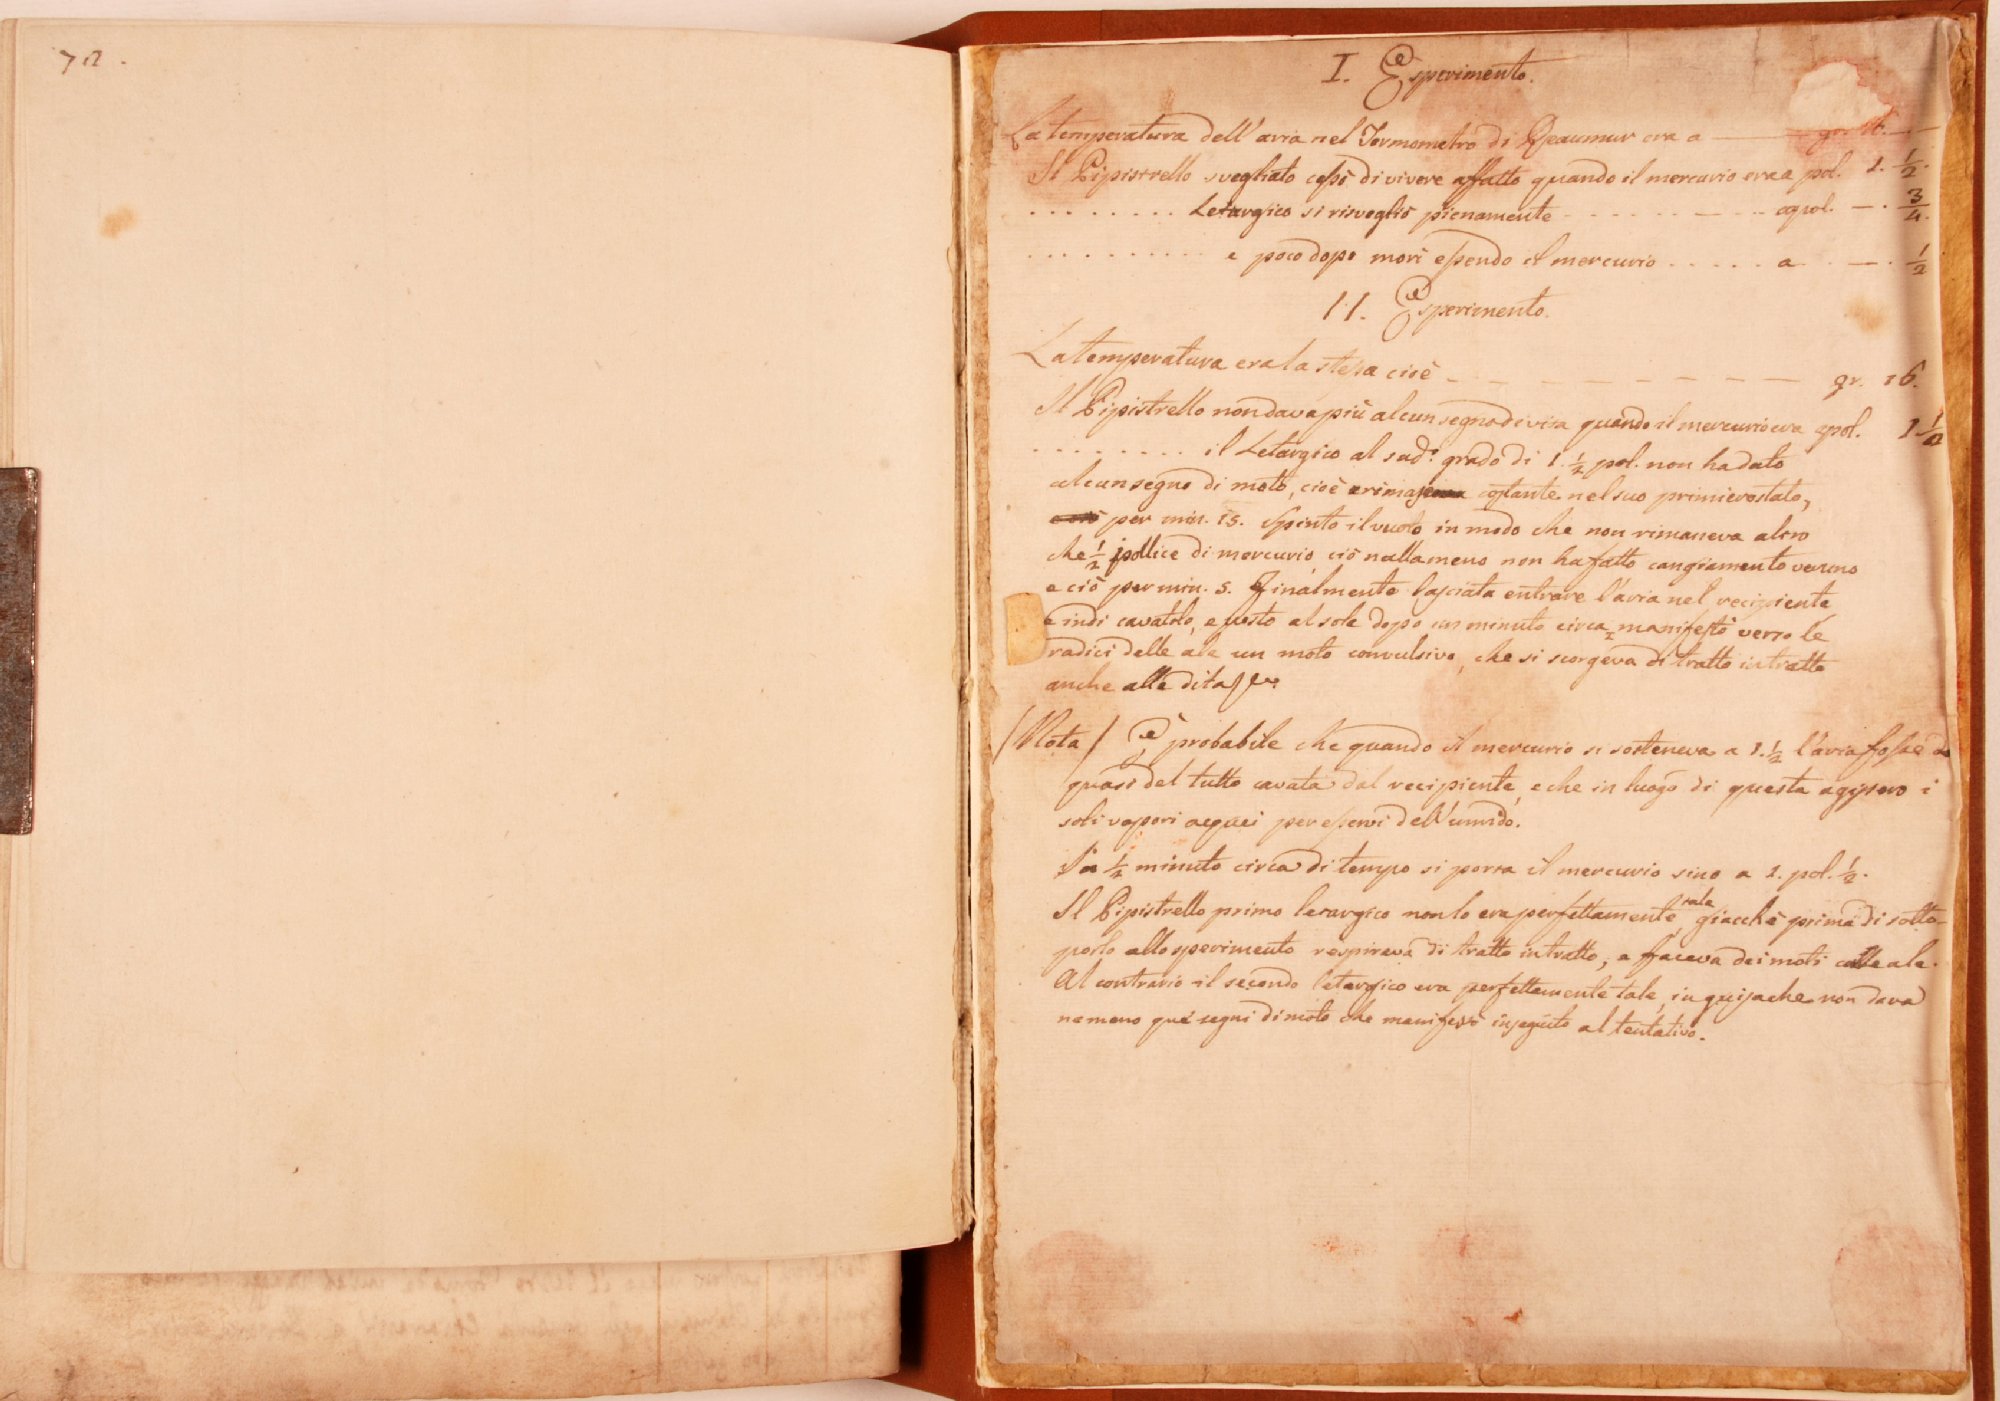 72.
I. Esperimento.
La temperatura dell'aria nel Termometro di Reaumur era a
Il Pipistrello svegliato cessò di vivere affatto quando il mercurio era a pol. 1. 1/2.
. . . . . . . . . Letargico si risvegliò pienamente - - - - - - - - a pol. — . 3/4.
. . . . . . . . . . . e poco dopo morì essendo il mercurio . . . . . a . — . 1/2
II. Esperimento.
La temperatura era la stessa cioè — — — — — — — — gr. 16.
Il Pipistrello non dava più alcun segno di vita quando il mercurio era a pol. 1 1/2
. . . . . . . . . il Letargico al sud.º grado di 1. 1/2 pol. non ha dato
alcun segno di moto, cioè costante nel suo primiero stato,
per min. 15. Spinto il vuoto in modo che non rimaneva altro
che 1/2 pollice di mercurio, ciò nullameno non ha fatto cangiamento veruno
e ciò per min. 5. Finalmente lasciata entrare l'aria nel recipiente,
e indi cavatolo, e posto al sole dopo un minuto circa manifestò verso le
radici delle ale un moto convulsivo, che si scorgeva di tratto in tratto
anche alle dita
(Nota) È probabile che quando il mercurio si sosteneva a 1. 1/2 l'aria fosse
quasi del tutto cavata dal recipiente, e che in luogo di questa agissero i
soli vapori acquei per esservi dell'umido.
In 1/2 minuto circa di tempo si porta il mercurio sino a 1. pol. 1/2.
Il Pipistrello primo letargico non lo era perfettamente tale, giacchè prima di sotto-
porlo allo sperimento respirava di tratto in tratto, e faceva dei moti colle ale.
Al contrario il secondo letargico era perfettamente tale, in guisa che non dava
nemeno que' segni di moto che manifestò in seguito al tentativo.